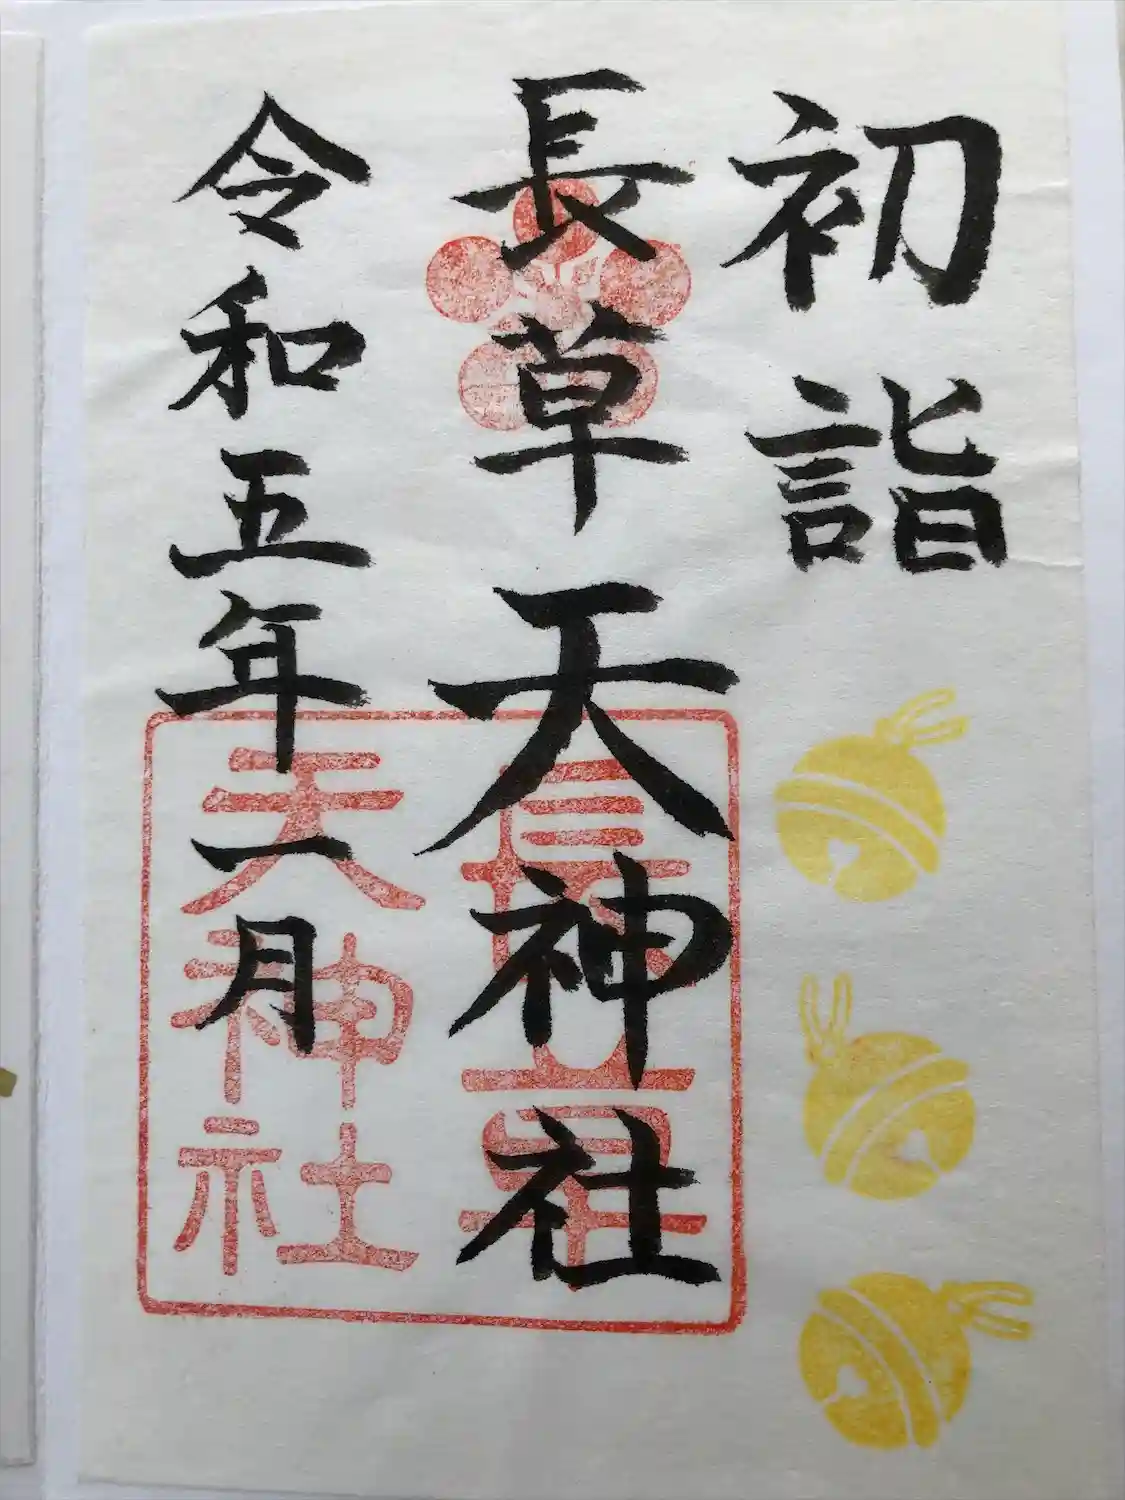 初詣
長草天神社
令和五年一月
長草天神社